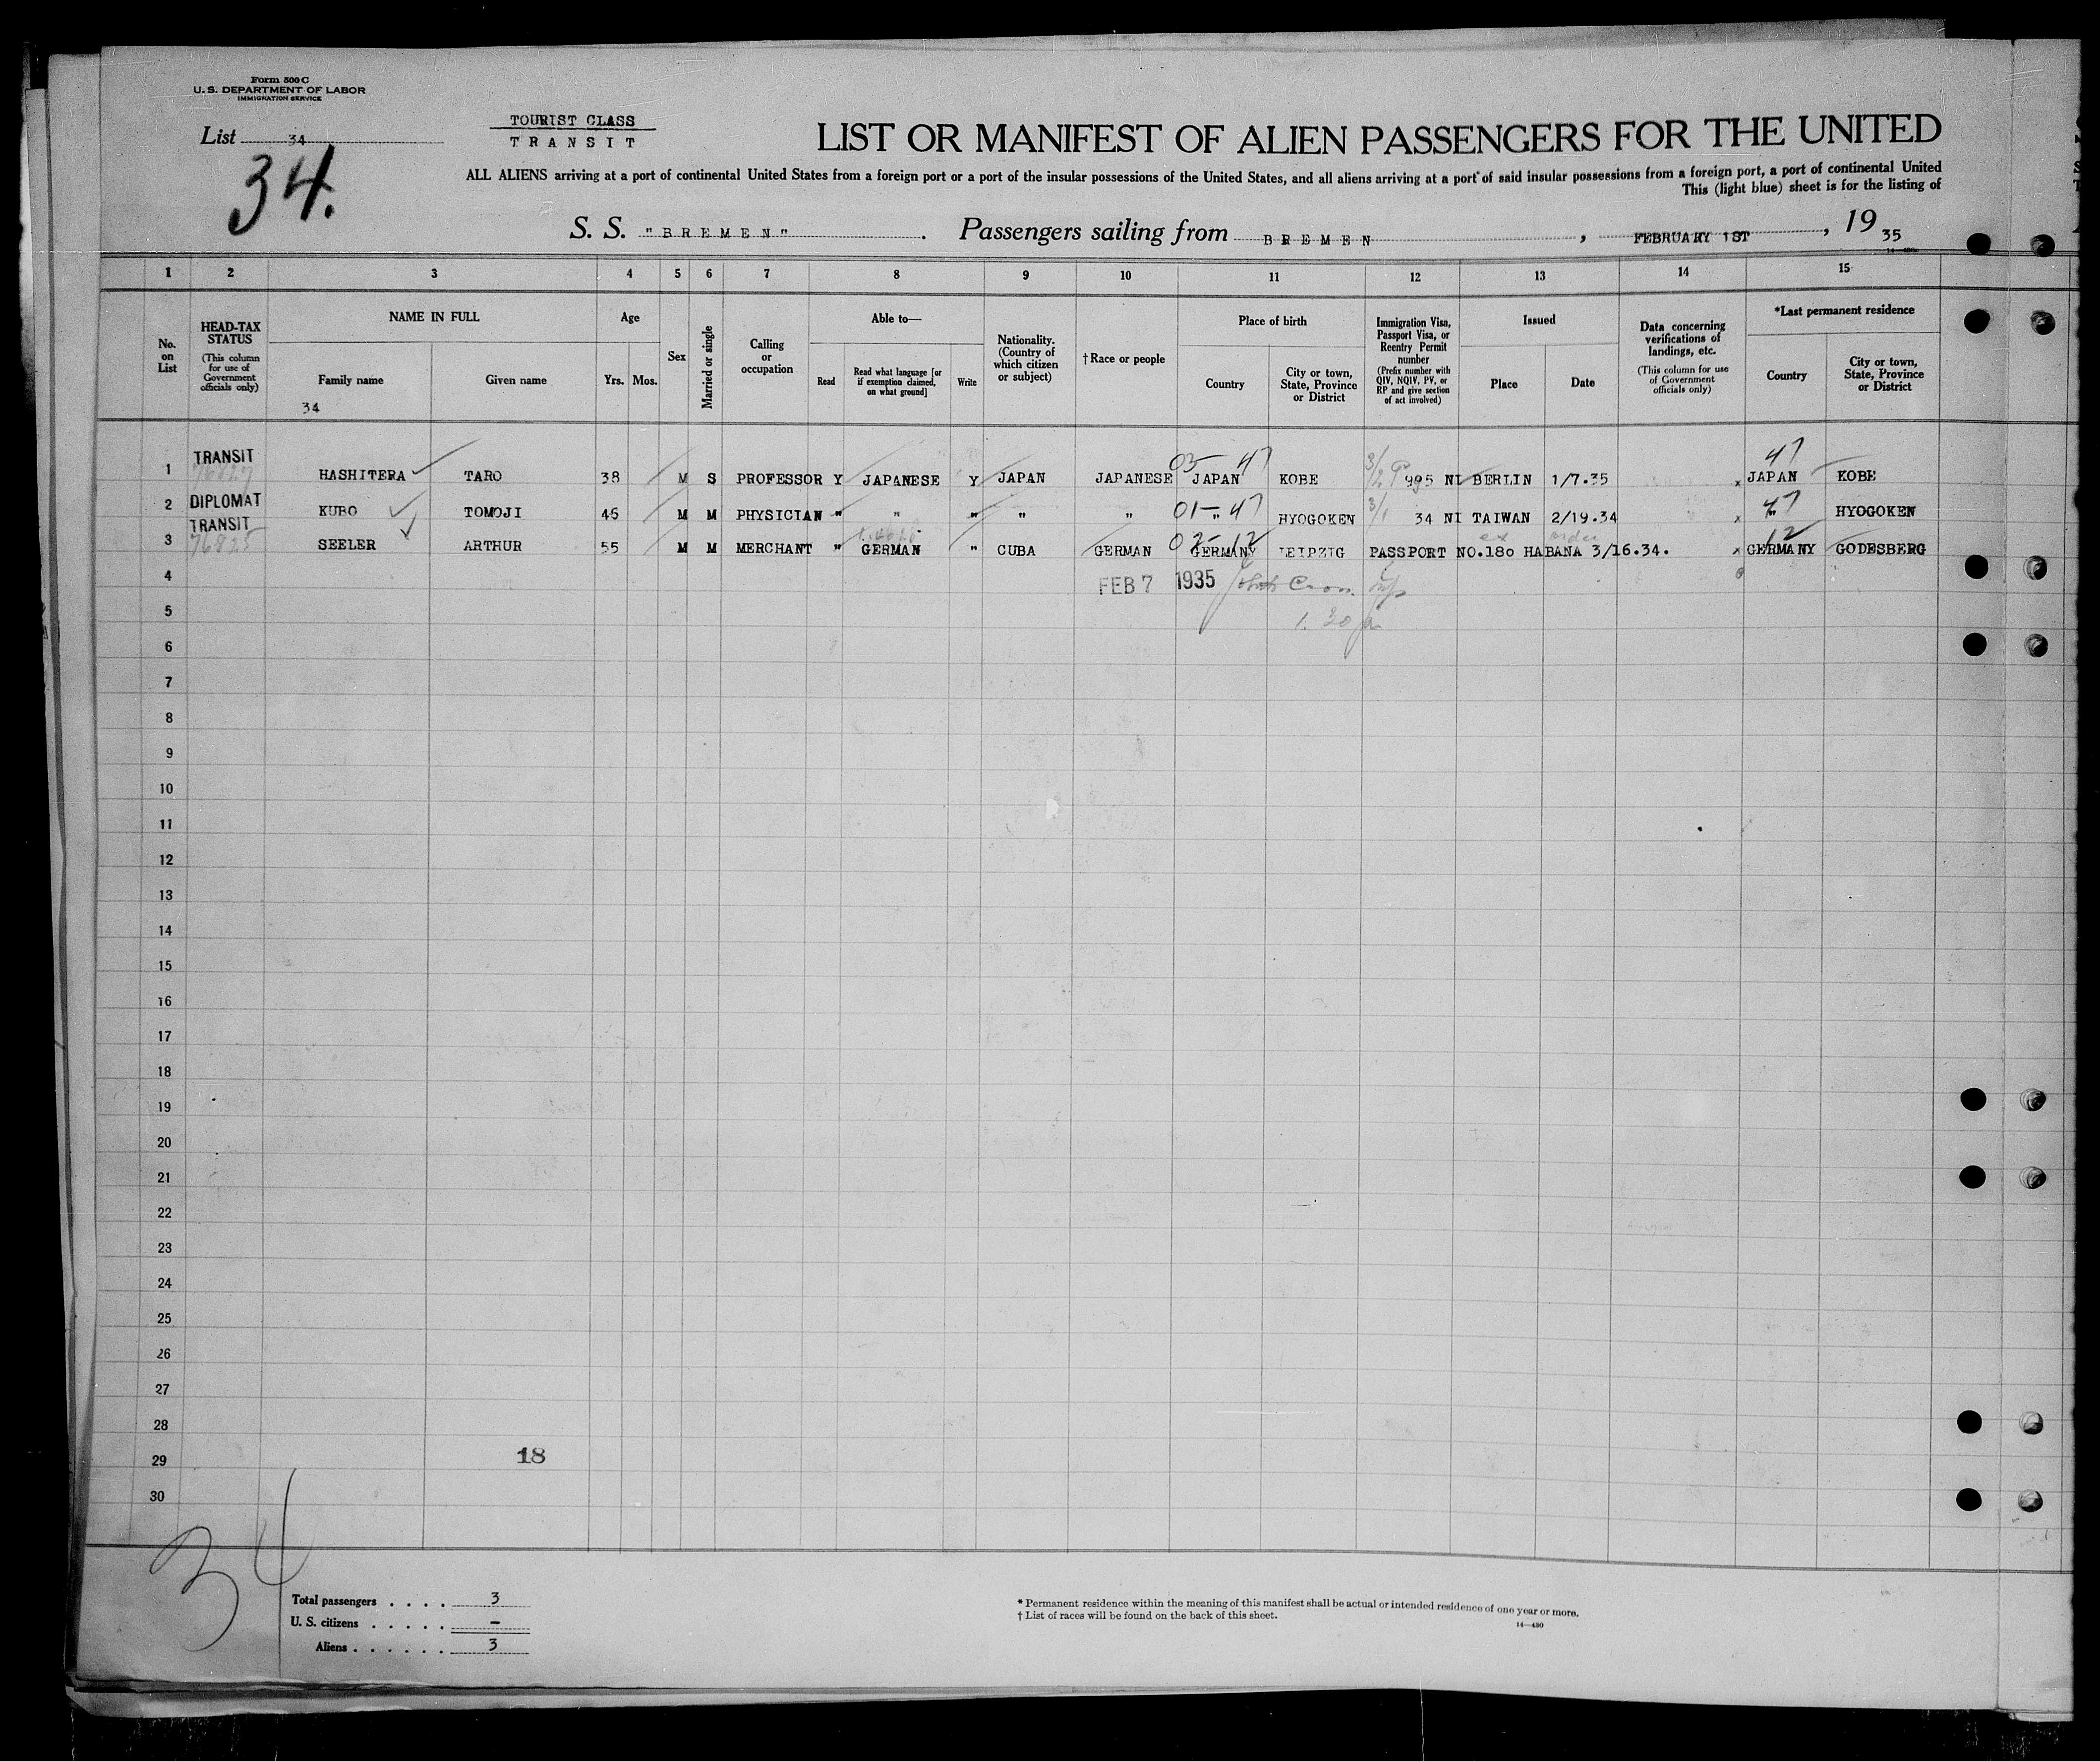 Form 500 C
U. S. DEPARTMENT OF LABOR
IMMIGRATION SERVICE
List 34
34.
TOURIST CLASS
TRANSIT
LIST OR MANIFEST OF ALIEN PASSENGERS FOR THE UNITED
ALL ALIENS arriving at a port of continental United States from a foreign port or a port of the insular possessions of the United States, and all aliens arriving at a port of said insular possessions from a foreign port, a port of continental United
This (light blue) sheet is for the listing of
S. S. "BREMEN". Passengers sailing from BREMEN, FEBRUARY 1ST, 19 35
1 2 3 4 5 6 7 8 9 10 11 12 13 14 15
No. on List
HEAD-TAX STATUS
(This column for use of Government officials only)
NAME IN FULL
Family name
Given name
34
Age
Yrs. Mos.
Sex
Married or single
Calling or occupation
Able to—
Read
Read what language [or if exemption claimed, on what ground]
Write
Nationality. (Country of which citizen or subject)
† Race or people
Place of birth
Country
City or town, State, Province or District
Immigration Visa, Passport Visa, or Reentry Permit number
(Prefix number with QIV, NQIV, PV, or RP and give section of act involved)
Issued
Place
Date
Data concerning verifications of landings, etc.
(This column for use of Government officials only)
*Last permanent residence
Country
City or town, State, Province or District
03— 47 47
1 TRANSIT HASHITERA TARO 38 M S PROFESSOR Y JAPANESE Y JAPAN JAPANESE JAPAN KOBE 995 NI BERLIN 1/7.35 x JAPAN KOBE
01— 47 47
2 DIPLOMAT KUBO TOMOJI 46 M M PHYSICIAN " " " " " " HYOGOKEN 3/1 34 NI TAIWAN 2/19.34 x " HYOGOKEN
02— 12 12
3 TRANSIT 76825 SEELER ARTHUR 55 M M MERCHANT " GERMAN " CUBA GERMAN GERMANY LEIPZIG PASSPORT NO.180 HABANA 3/16.34. x GERMANY GODESBERG
4 FEB 7 1935
5 1.30 pm
6
7
8
9
10
11
12
13
14
15
16
17
18
19
20
21
22
23
24
25
26
27
28
29 18
30
34
Total passengers . . . . 3
U. S. citizens . . . . . –
Aliens . . . . . . 3
* Permanent residence within the meaning of this manifest shall be actual or intended residence of one year or more.
† List of races will be found on the back of this sheet.
14—430